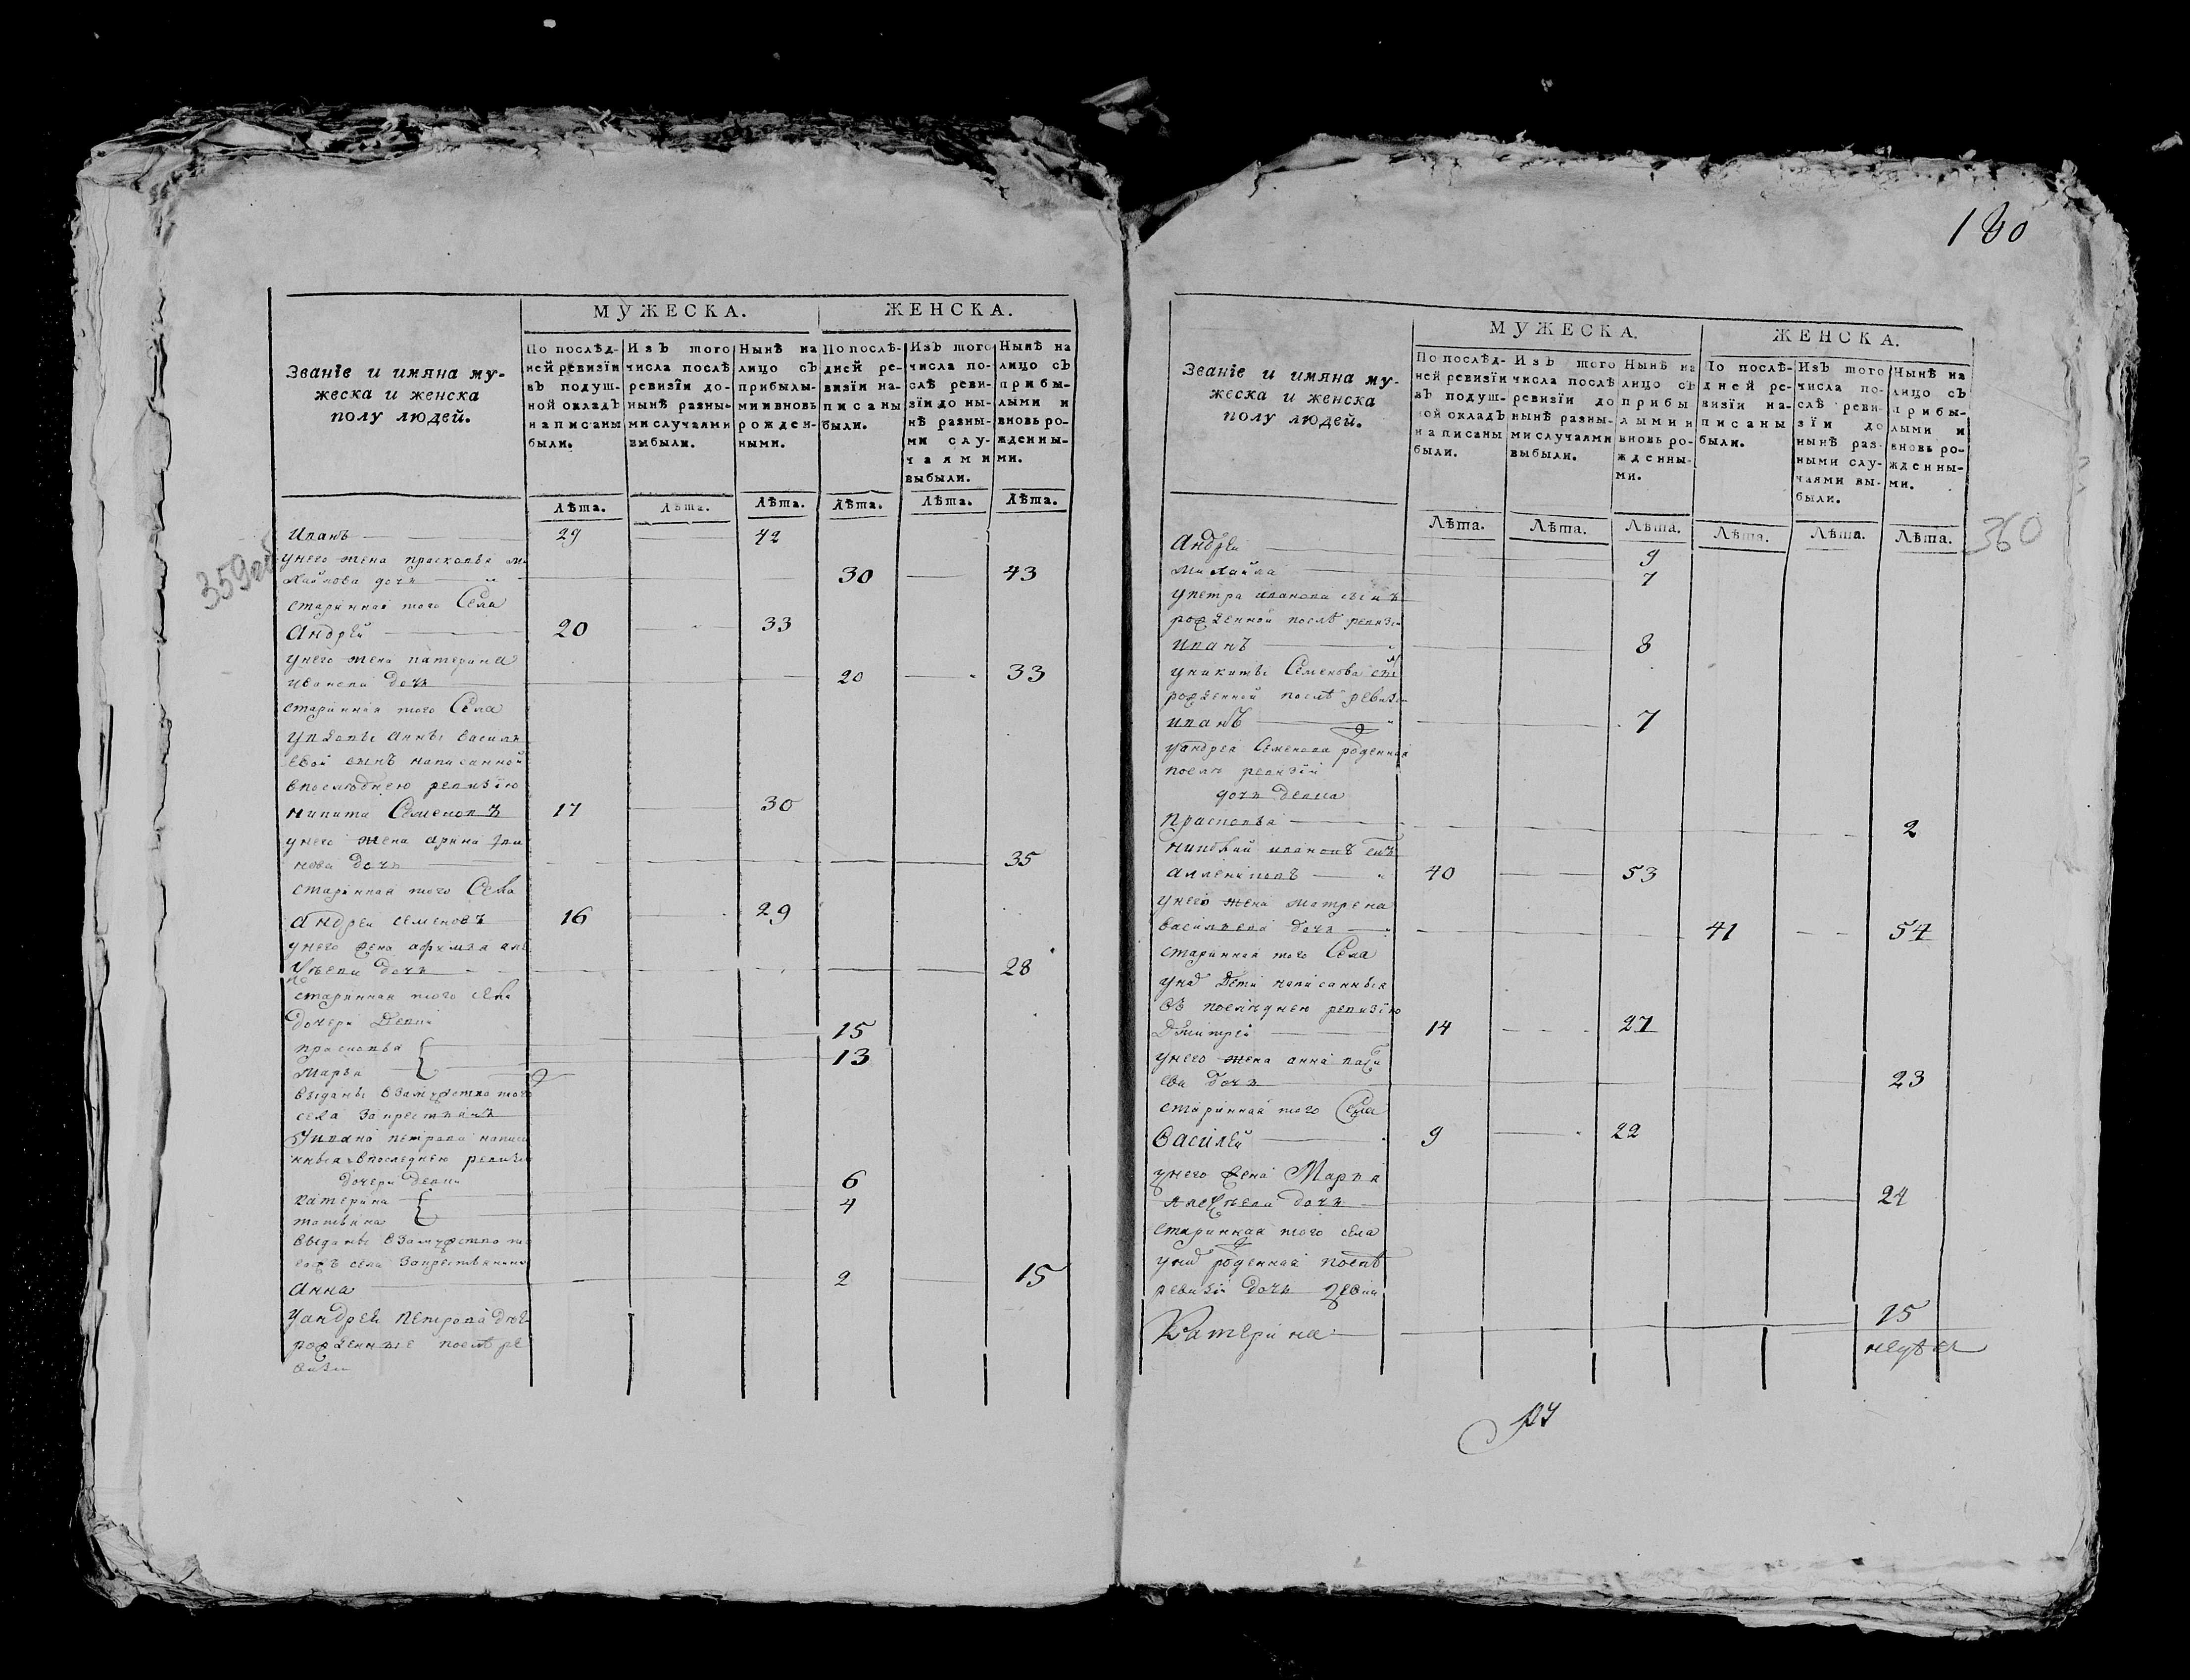 МУЖЕСКА.
ЖЕНСКА.
Званіе и имяна му-
жеска и женска
полу людей.
По послѣд-
ней ревизіи
въ подуш-
ной окладъ
написаны
были.
Изъ того
числа послѣ
ревизіи до-
нынѣ разны-
ми случаями
выбыли.
Нынѣ на
лицо съ
прибылы-
ми и вновь
рожден-
ными.
По послѣ-
дней ре-
визіи на-
писаны
были.
Изъ того
числа по-
слѣ реви-
зіи до ны-
нѣ разны-
ми слу-
чаями
выбыли.
Нынѣ на
лицо съ
прибы-
лыми и
вновь ро-
жденны-
ми.
Лѣта. Лѣта. Лѣта. Лѣта. Лѣта. Лѣта.
359об
Иванъ 29 42
унего жена прасковья ми
хайлова дочь 30 43
старинная того Села
Андрей 20 33
унего жена катерина
иванова дочь 20 33
старинная того Села
увдовы анны василь
евой сынъ написанной
впослѣднею ревизїю
никита Семеновъ 17 30
унего жена арина
нова дочь 35
старинная того Села
Андреи семеновъ 16 29
унего жена афимья але
ѣева дочь 28
старинная того села
дочери девки
прасковья 15
Марья 13
выданы взамужство того
села закрестьянъ
Уивана петрова написа
нныя впоследнею ревизи
дочери девки
катерина 6
татьяна 4
выданы взамужство то
гожъ села закрестьянина
Анна 2 15
Уандрея петрова дѣти
рожденные послѣ ре
визи
180
МУЖЕСКА.
ЖЕНСКА.
Званіе и имяна му-
жеска и женска
полу людей.
По послѣд-
ней ревизіи
въ подуш-
ной окладъ
написаны
были.
Изъ того
числа послѣ
ревизіи до
нынѣ разны-
ми случаями
выбыли.
Нынѣ на
лицо съ
прибы
лыми и
вновь ро-
жденны-
ми.
По послѣ-
дней ре-
визіи на-
писаны
были.
Изъ того
числа по-
слѣ реви-
зіи до
нынѣ раз-
ными слу-
чаями вы-
были.
Нынѣ на
лицо съ
прибы-
лыми и
вновь ро-
жденны-
ми.
Лѣта. Лѣта. Лѣта. Лѣта. Лѣта. Лѣта.
360
Андреи 9
михайла 7
упетра иванова сынъ
рожденной послѣ ревизи
иванъ 8
уникиты Семенова сынъ
рожденной послѣ ревизи
иванъ 7
уандрея Семенова рожденная
послѣ ревизїи
дочь девка
прасковья 2
никофай ивановъ сынъ
40 53
унего жена матрена
васильева дочь 41 54
старинная того Села
унихъ дети написанныя
въ послѣднею ревизїю
Дмитрей 14 27
унего жена анна
ева дочь 23
старинная того Села
Василей 9 22
унего жена Марья
алексѣева дочь 24
старинная того села
унихъ рожденная послѣ
ревизїи дочь девка
Катерина 15
недѣль